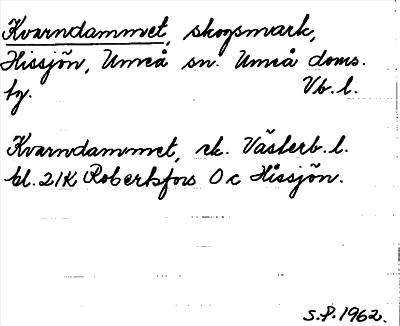 Kvarndammet, skogsmark,
Hissjön, Umeå sn. Umeå doms.
hg. Vb. l.
Kvarndammet, ek. Västerb. l.
bl. 21K Robertsfors 0 c Hissjön.
S.P. 1962.